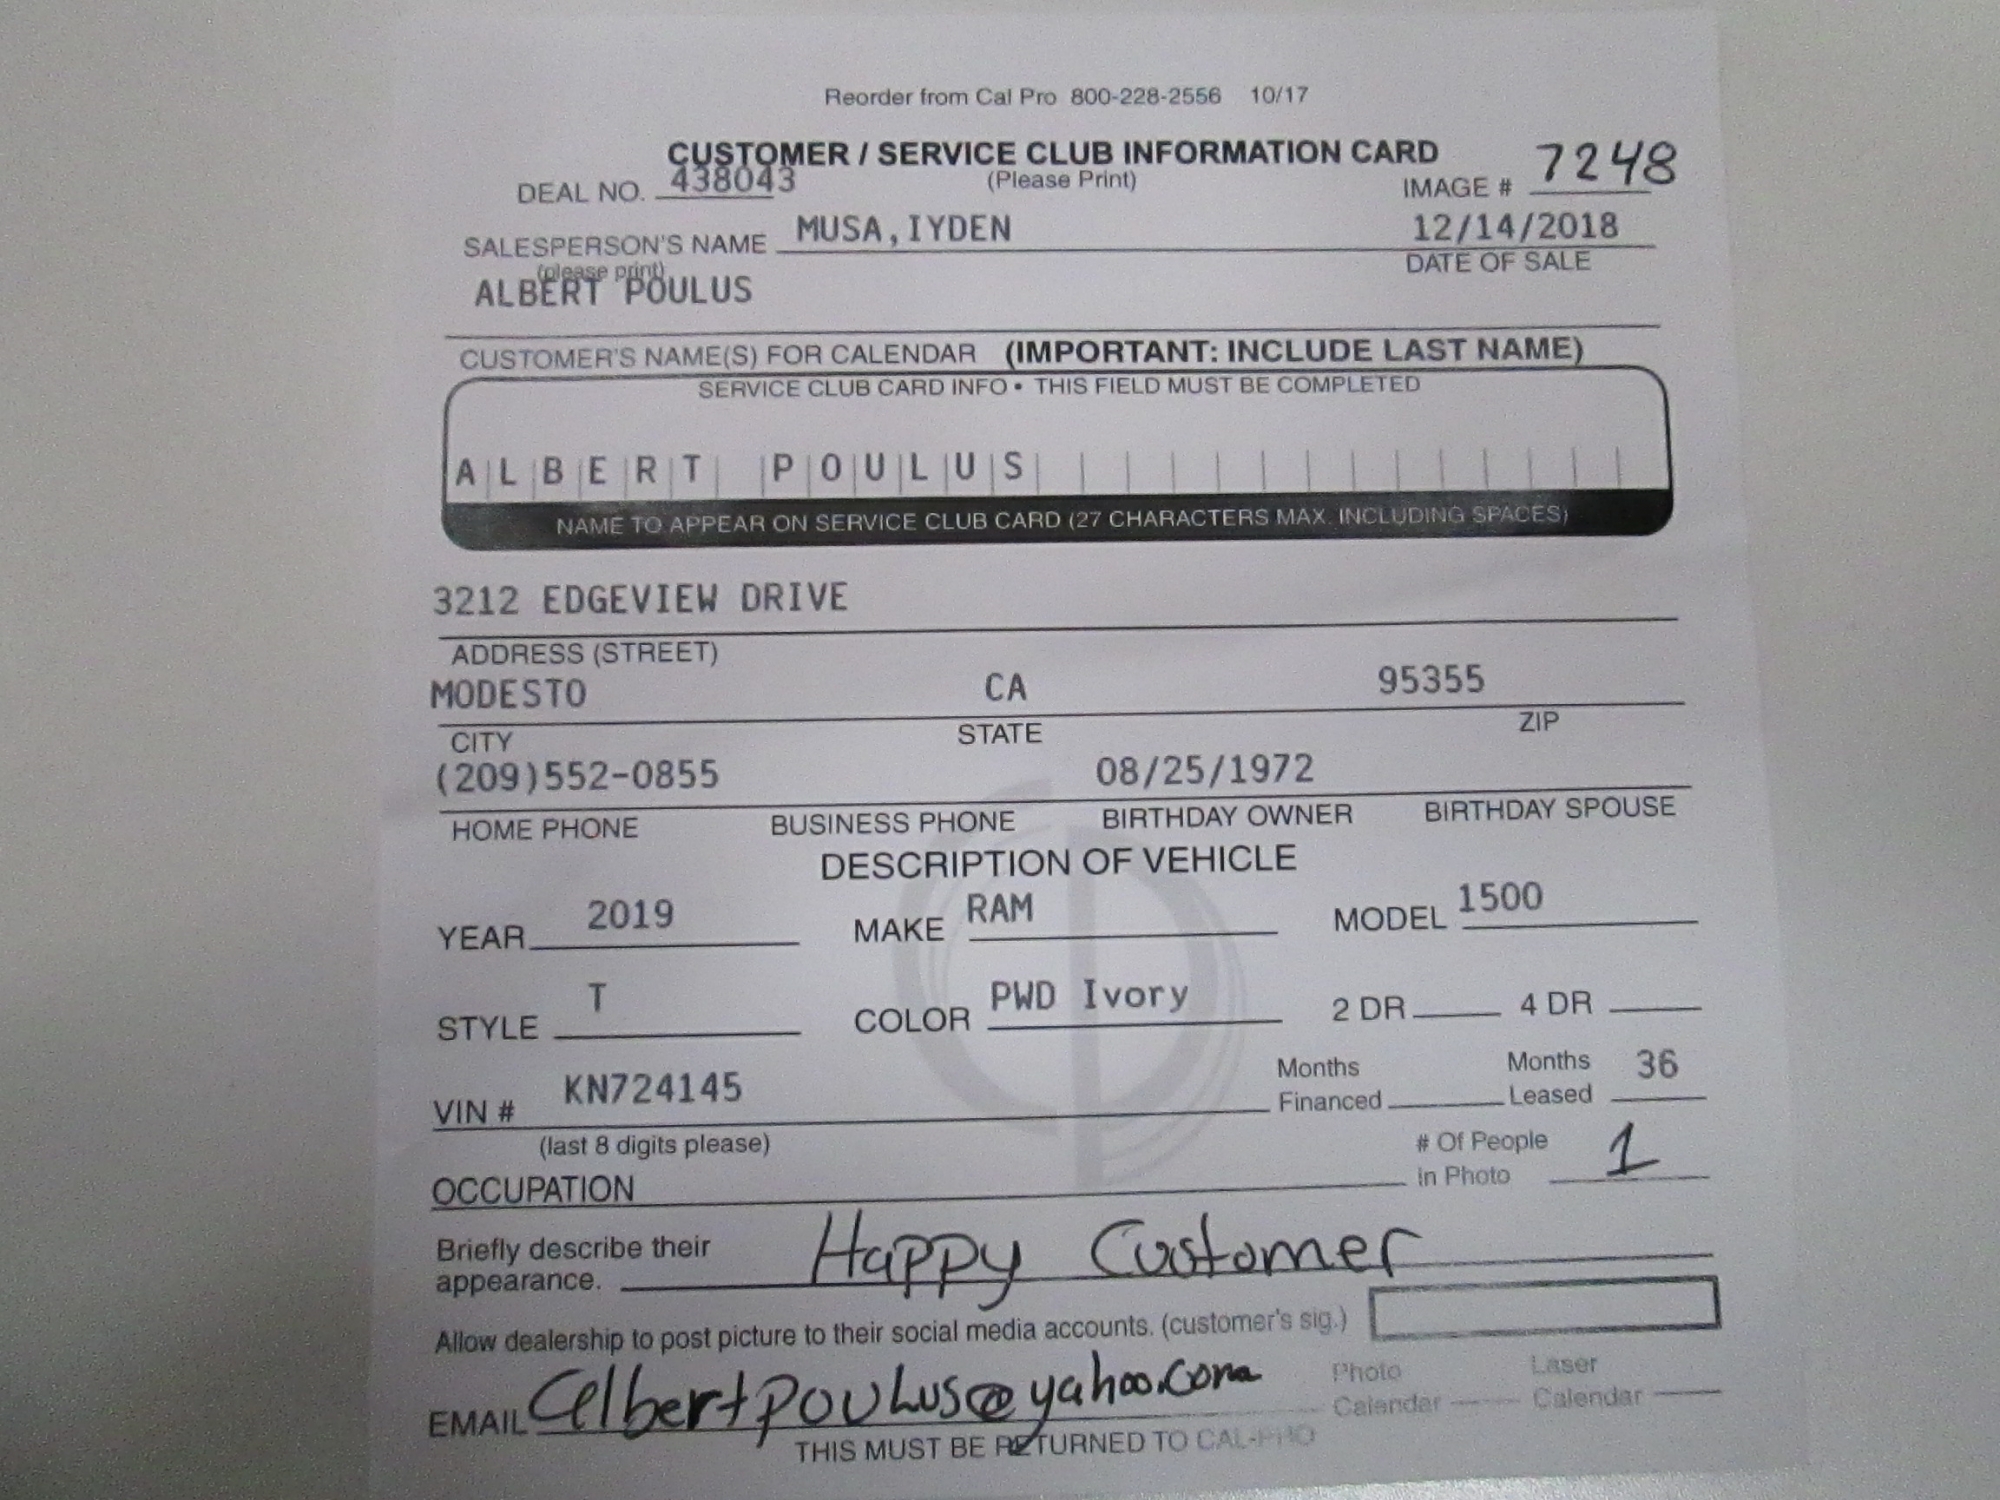 Reorder from Cal Pro 800-228-2556 10/17
CUSTOMER / SERVICE CLUB INFORMATION CARD
(Please Print)
DEAL NO. 438043 IMAGE # 7248
SALESPERSON'S NAME MUSA,IYDEN 12/14/2018
(please print) DATE OF SALE
ALBERT POULUS
CUSTOMER'S NAME(S) FOR CALENDAR (IMPORTANT: INCLUDE LAST NAME)
SERVICE CLUB CARD INFO • THIS FIELD MUST BE COMPLETED
ALBERT POULUS
NAME TO APPEAR ON SERVICE CLUB CARD (27 CHARACTERS MAX. INCLUDING SPACES)
3212 EDGEVIEW DRIVE
ADDRESS (STREET)
MODESTO CA 95355
CITY STATE ZIP
(209)552-0855 08/25/1972
HOME PHONE BUSINESS PHONE BIRTHDAY OWNER BIRTHDAY SPOUSE
DESCRIPTION OF VEHICLE
YEAR 2019 MAKE RAM MODEL 1500
STYLE T COLOR PWD Ivory 2 DR 4 DR
VIN # KN724145 Months Financed Months Leased 36
(last 8 digits please) # Of People in Photo 1
OCCUPATION
Briefly describe their appearance. Happy Customer
Allow dealership to post picture to their social media accounts. (customer's sig.)
EMAIL albertpoulus@yahoo.com Photo Calendar Laser Calendar
THIS MUST BE RETURNED TO CAL-PRO